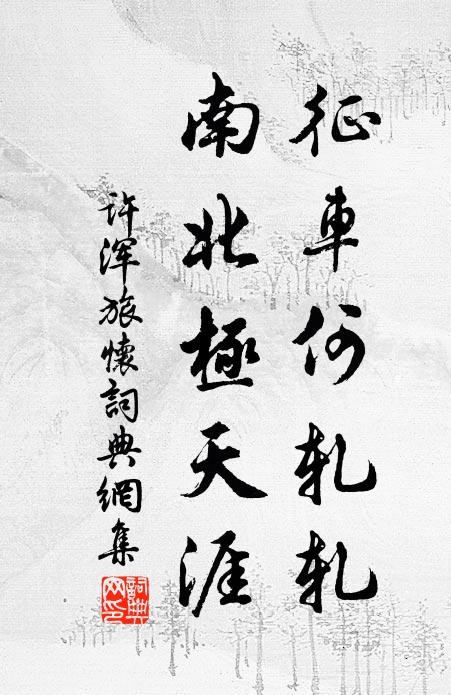 征車何軋軋
南北極天涯
许浑旅懷詞典網集
詞典网印